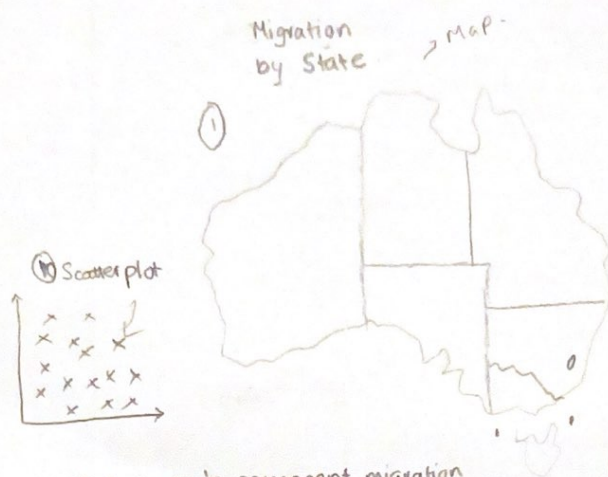 Migration
by State
Map.
1
Scatterplot
permanent migration